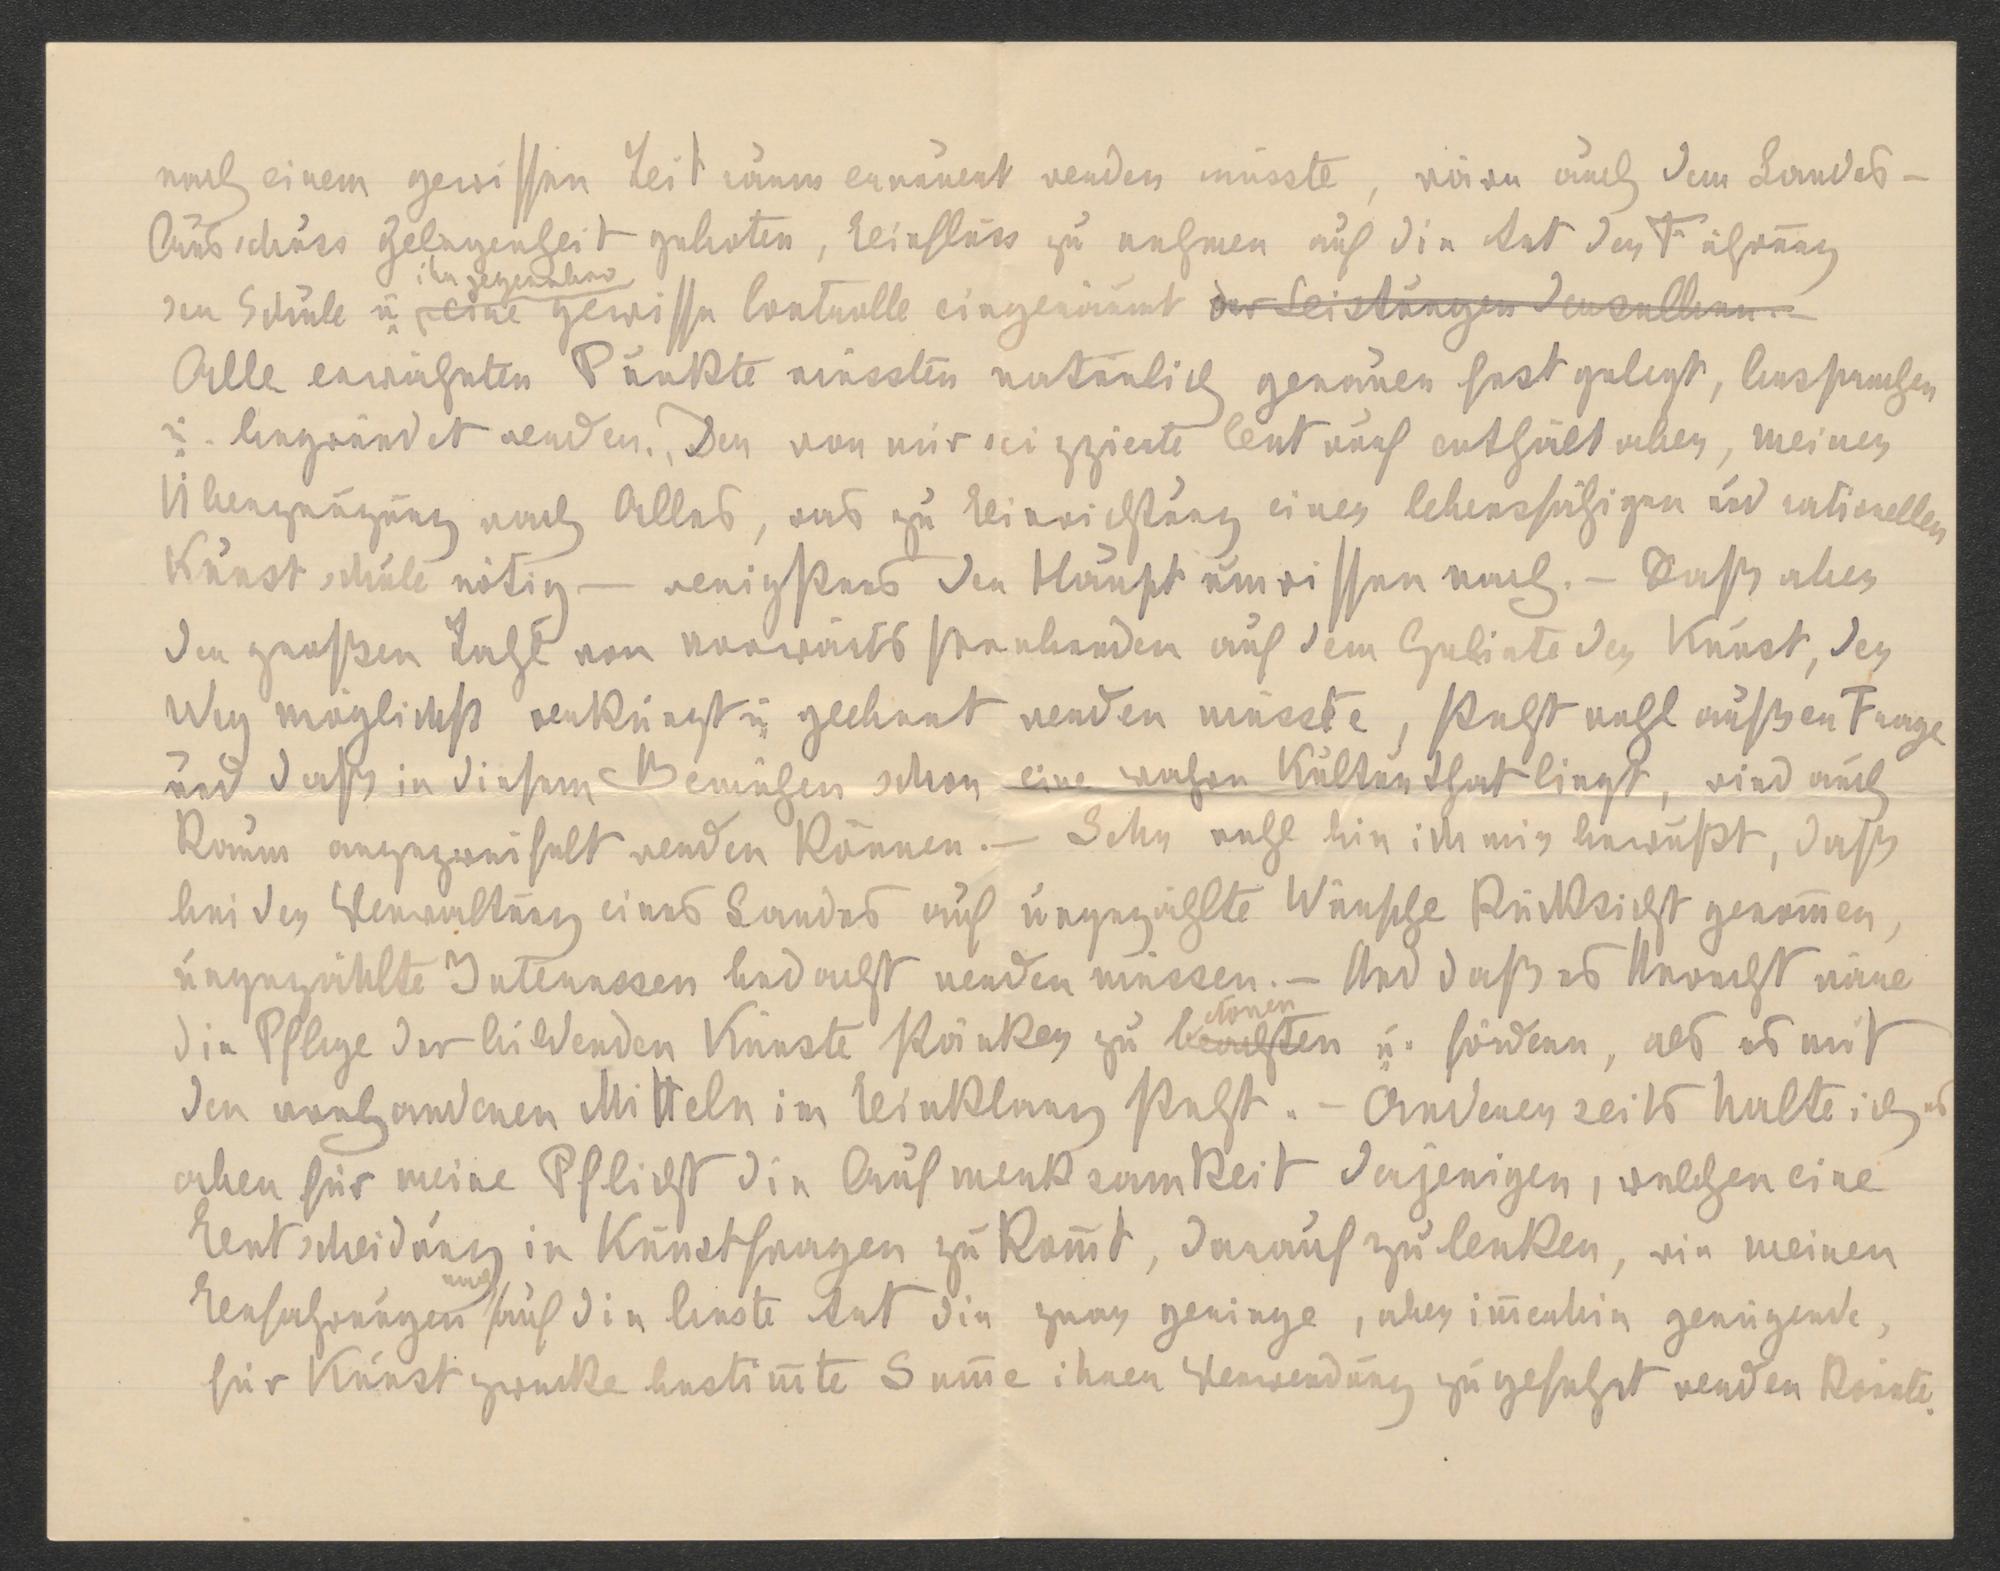 nach einem gewissen Zeitraum erneuert werden müsste, wäre auch dem Landes-
Ausschuss Gelegenheit geboten, Einfluss zu nehmen auf die Art der Führung
ihr gegenüber
der Schule u. eine gewisse Controlle eingeräumt der Leistungen derselben.-
Alle erwähnten Punkte müssten natürlich genauer festgelegt, besprochen
u. begründet werden. Der von mir scizzierte Entwurf enthält aber, meiner
Überzeugung nach Alles, was zu Einrichtung einer lebensfähigen und rationellen
Kunstschule nötig — wenigstens den Hauptumrissen nach.- Daß aber
der großen Zahl von vorwärts strebenden auf dem Gebiete der Kunst, der
Weg möglichst verkürzt u. geebnet werden müsste, steht wohl außer Frage
und daß in diesem Bemühen schon eine wahre Kulturthat liegt, wird auch
kaum angezweifelt werden können.- Sehr wohl bin ich mir bewußt, daß
bei der Verwaltung eines Landes auf ungezählte Wünsche Rücksicht genom̅en,
ungezählte Interessen bedacht werden müssen.- Und daß es Unrecht wäre
tonen
die Pflege der bildenden Künste stärker zu beachten u. fördern, als es mit
den vorhandenen Mitteln im Einklang steht.- Anderer seits halte ich es
aber für meine Pflicht die Aufmerksamkeit derjenigen, welchen eine
Entscheidung in Kunstfragen zukom̅t, darauf zu lenken, wie meinen
nach
Erfahrungen auf die beste Art die zwar geringe, aber im̅erhin genügende,
für Kunstzwecke bestim̅te Sum̅e ihrer Verwendung zugeführt werden könnte.